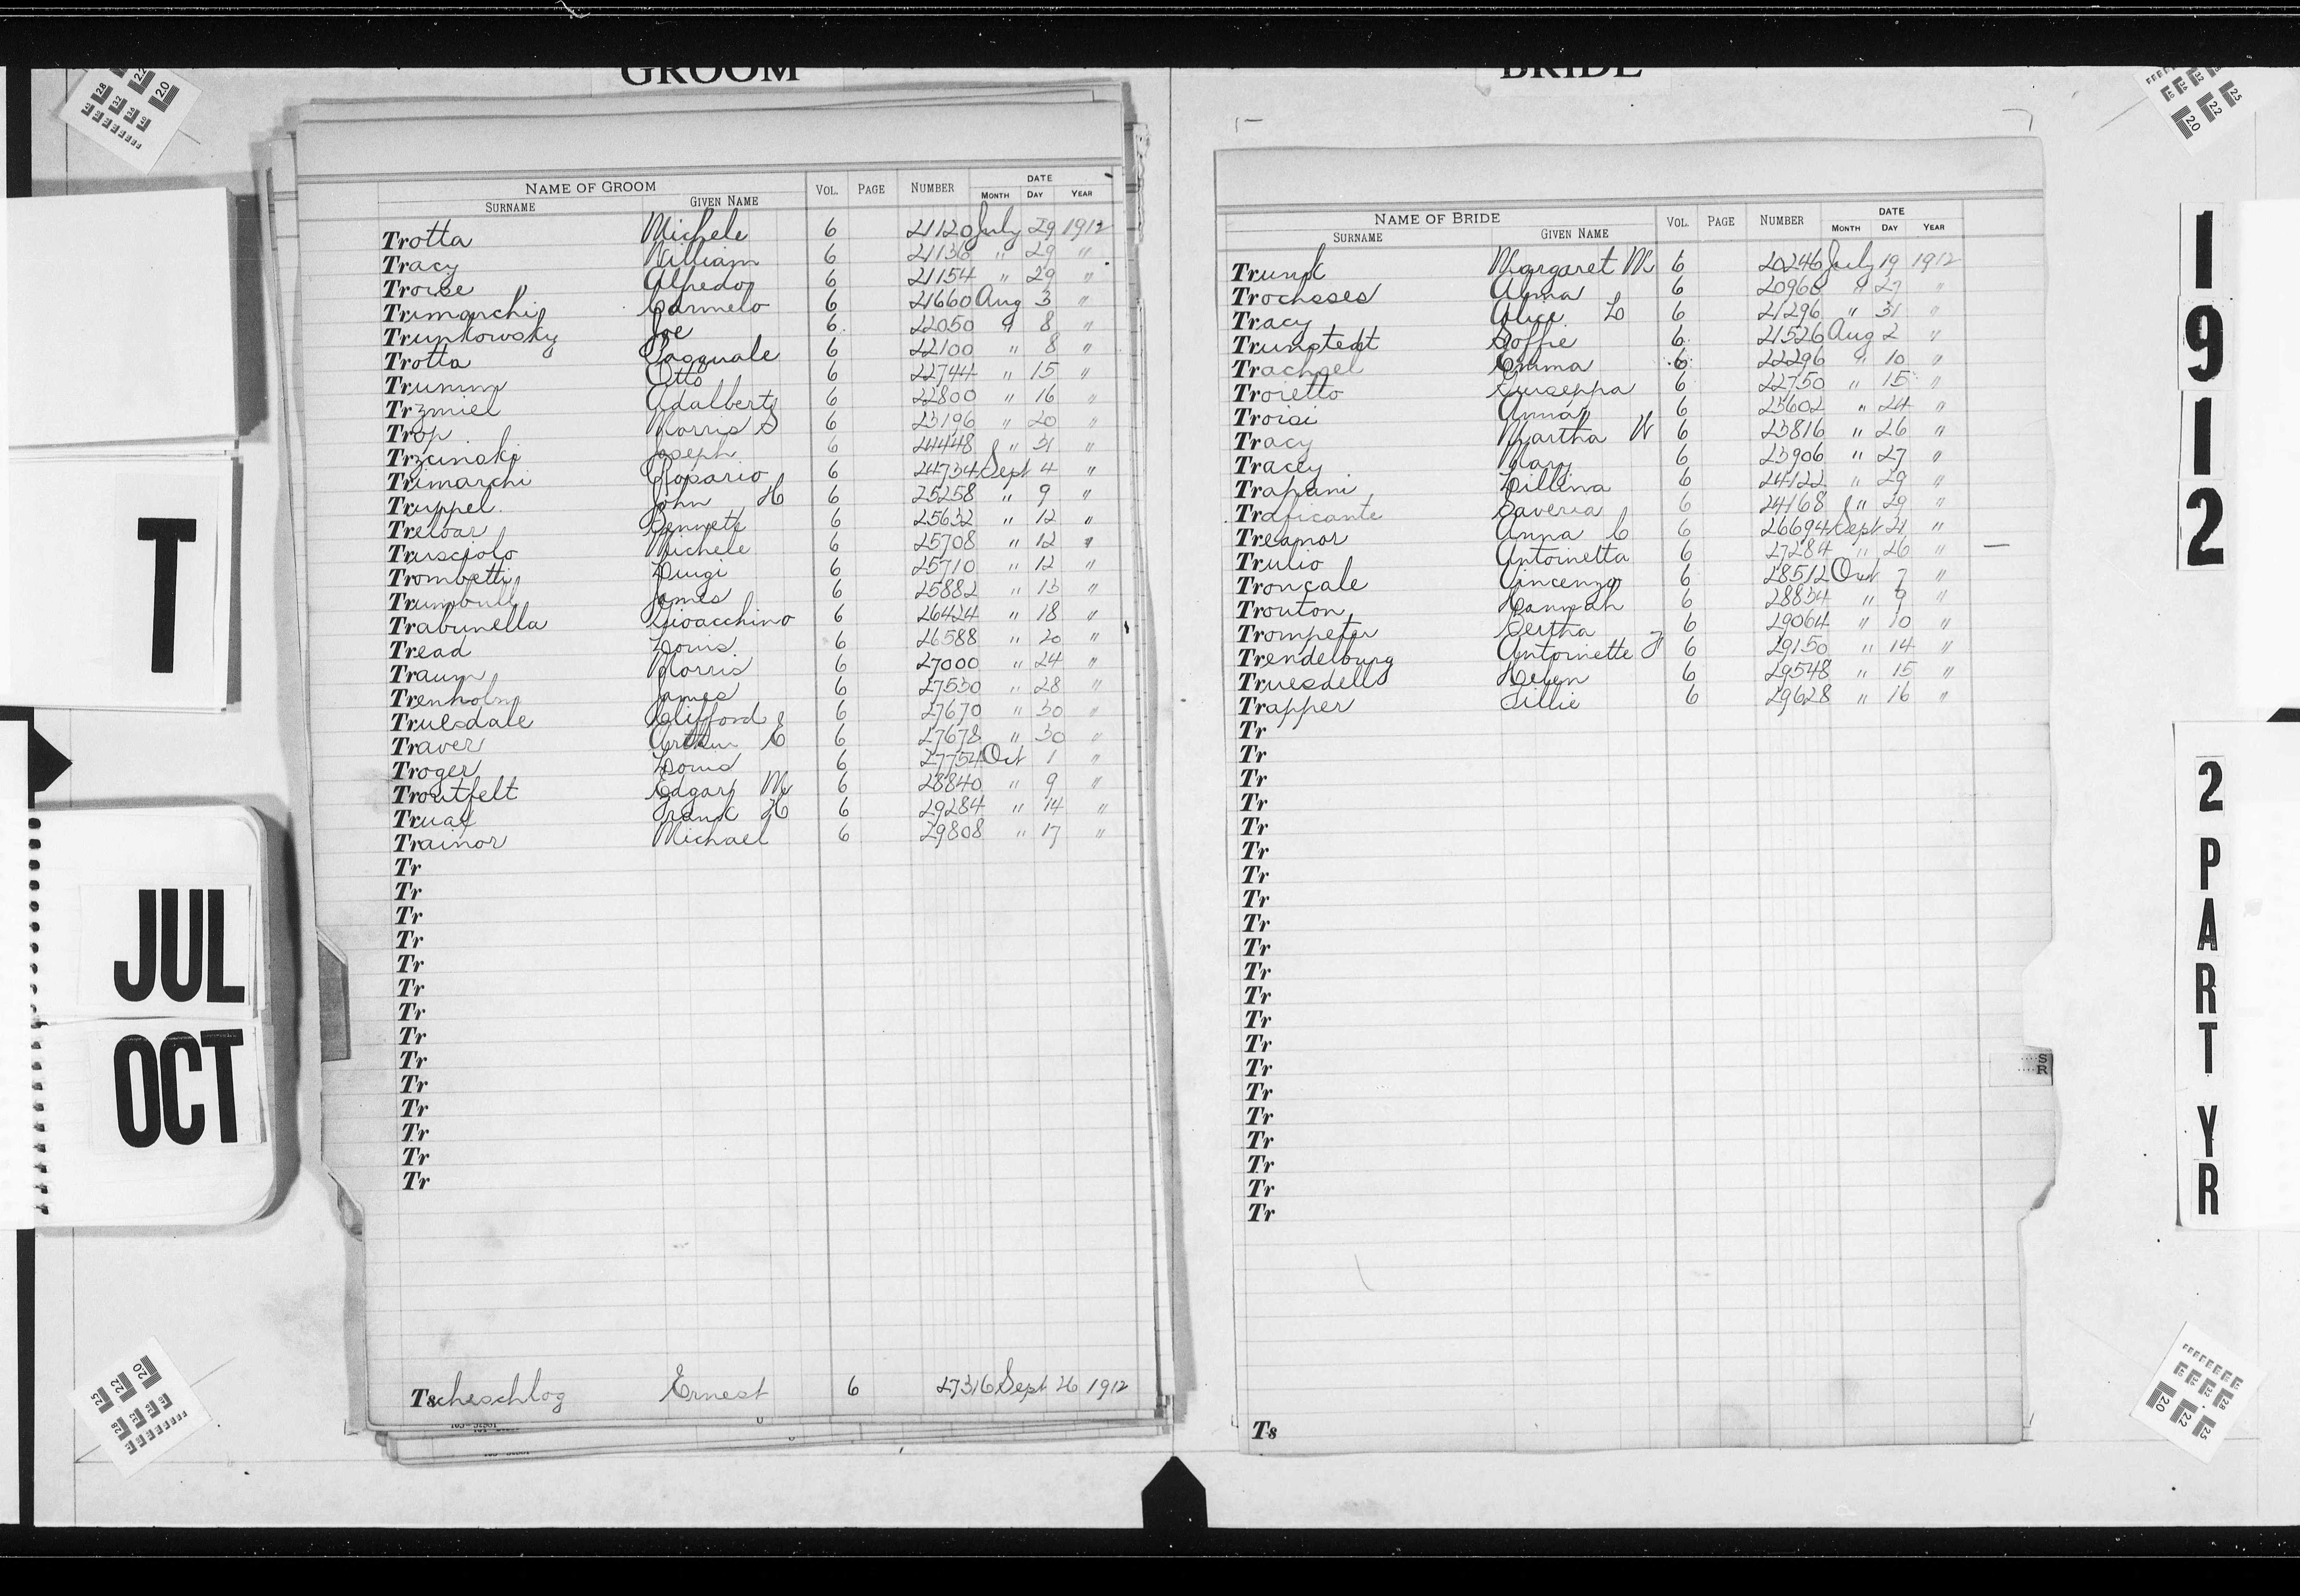 GROOM
NAME OF GROOM VOL. PAGE NUMBER DATE
SURNAME GIVEN NAME MONTH DAY YEAR
Trotta Michele 6 21120 July 29 1912
Tracy William 6 21136 " 29 "
Troise Alfredo 6 21154 " 29 "
Trimarchi Carmelo 6 21660 Aug 3 "
Trunkowsky Joe 6 22050 " 8 "
Trotta Pasquale 6 22100 " 8 "
Trumm Otto 6 22744 " 15 "
Trzmiel Adalberts 6 22800 " 16 "
Trop Morris S 6 23196 " 20 "
Trzcinski Joseph 6 24448 " 31 "
Trimarchi Rosario 6 24734 Sept 4 "
Truppel John H 6 25258 " 9 "
Treloar Bennett 6 25632 " 12 "
Trusciolo Michele 6 25708 " 12 "
Trombetti Luigi 6 25710 " 12 "
Trumbull James 6 25882 " 13 "
Trabunella Gioacchino 6 26424 " 18 "
Tread Louis 6 26588 " 20 "
Traum Morris 6 27000 " 24 "
Trenholm James 6 27530 " 28 "
Truesdale Clifford 6 27670 " 30 "
Traver Arthur E 6 27678 " 30 "
Troger Louis 6 27754 Oct 1 "
Troutfelt Edgar M 6 28840 " 9 "
Truax Frank H 6 29284 " 14 "
Trainor Michael 6 29808 " 17 "
Tr
Tr
Tr
Tr
Tr
Tr
Tr
Tr
Tr
Tr
Tr
Tr
Tr
Tr
Tscheschlog Ernest 6 27316 Sept 26 1912
BRIDE
NAME OF BRIDE VOL. PAGE NUMBER DATE
SURNAME GIVEN NAME MONTH DAY YEAR
Trunk Margaret M 6 20246 July 19 1912
Trochsses Anna 6 20960 " 27 "
Tracy Alice L 6 21296 " 31 "
Trumstedt Soffie 6 21526 Aug 2 "
Trachsel Emma 6 22296 " 10 "
Troietto Giuseppa 6 22750 " 15 "
Troisi Anna 6 23602 " 24 "
Tracy Martha W 6 23816 " 26 "
Tracey Mary 6 23906 " 27 "
Trapani Lillina 6 24122 " 29 "
Traficante Saveria 6 24168 " 29 "
Treanor Anna C 6 26694 Sept 21 "
Trulio Antoinetta 6 27284 " 26 "
Troncale Vincenza 6 28512 Oct 7 "
Trouton Hannah 6 28834 " 9 "
Trompeter Bertha 6 29064 " 10 "
Trendelburg Antoinette F 6 29150 " 14 "
Truesdell Helen 6 29548 " 15 "
Trapper Tillie 6 29628 " 16 "
Tr
Tr
Tr
Tr
Tr
Tr
Tr
Tr
Tr
Tr
Tr
Tr
Tr
Tr
Tr
Tr
Tr
Tr
Tr
Tr
Tr
Ts
T
JUL
OCT
1912
2 PART YR